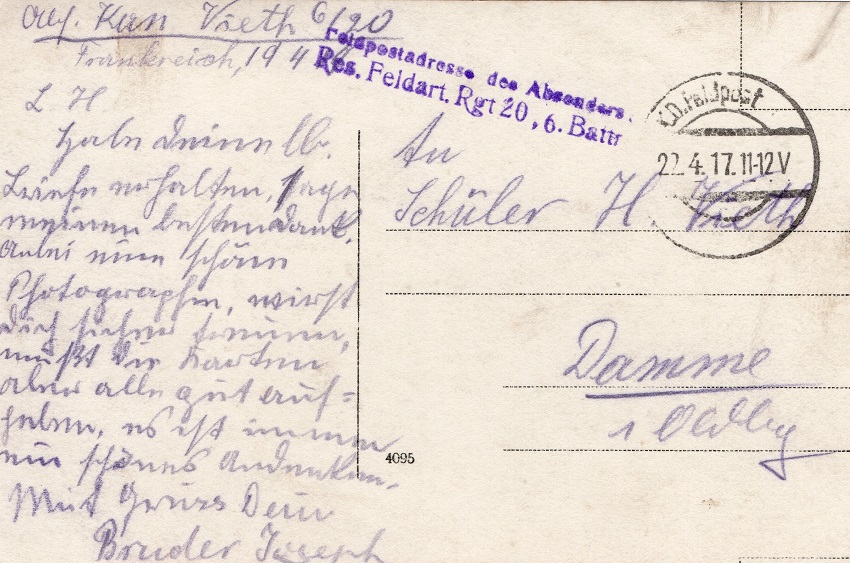 Abs. Kan Vieth 6/20
Frankreich, 19 4
Feldpostadresse des Absenders.
Res. Feldart. Rgt 20, 6. Battr
K.D. Feldpost
22.4.17.11-12V
L H
Habe deinen lb.
Briefe erhalten, sage
meinen besten Dank.
Anbei eine schöne
Photographie, wirst
dich sicher freuen,
mußt die Karten
aber alle gut auf=
heben, es ist immer
ein schönes Andenken.
Mit Gruss Dein
Bruder Joseph
An
Schüler H Vieth
Damme
i Oldbg
4095